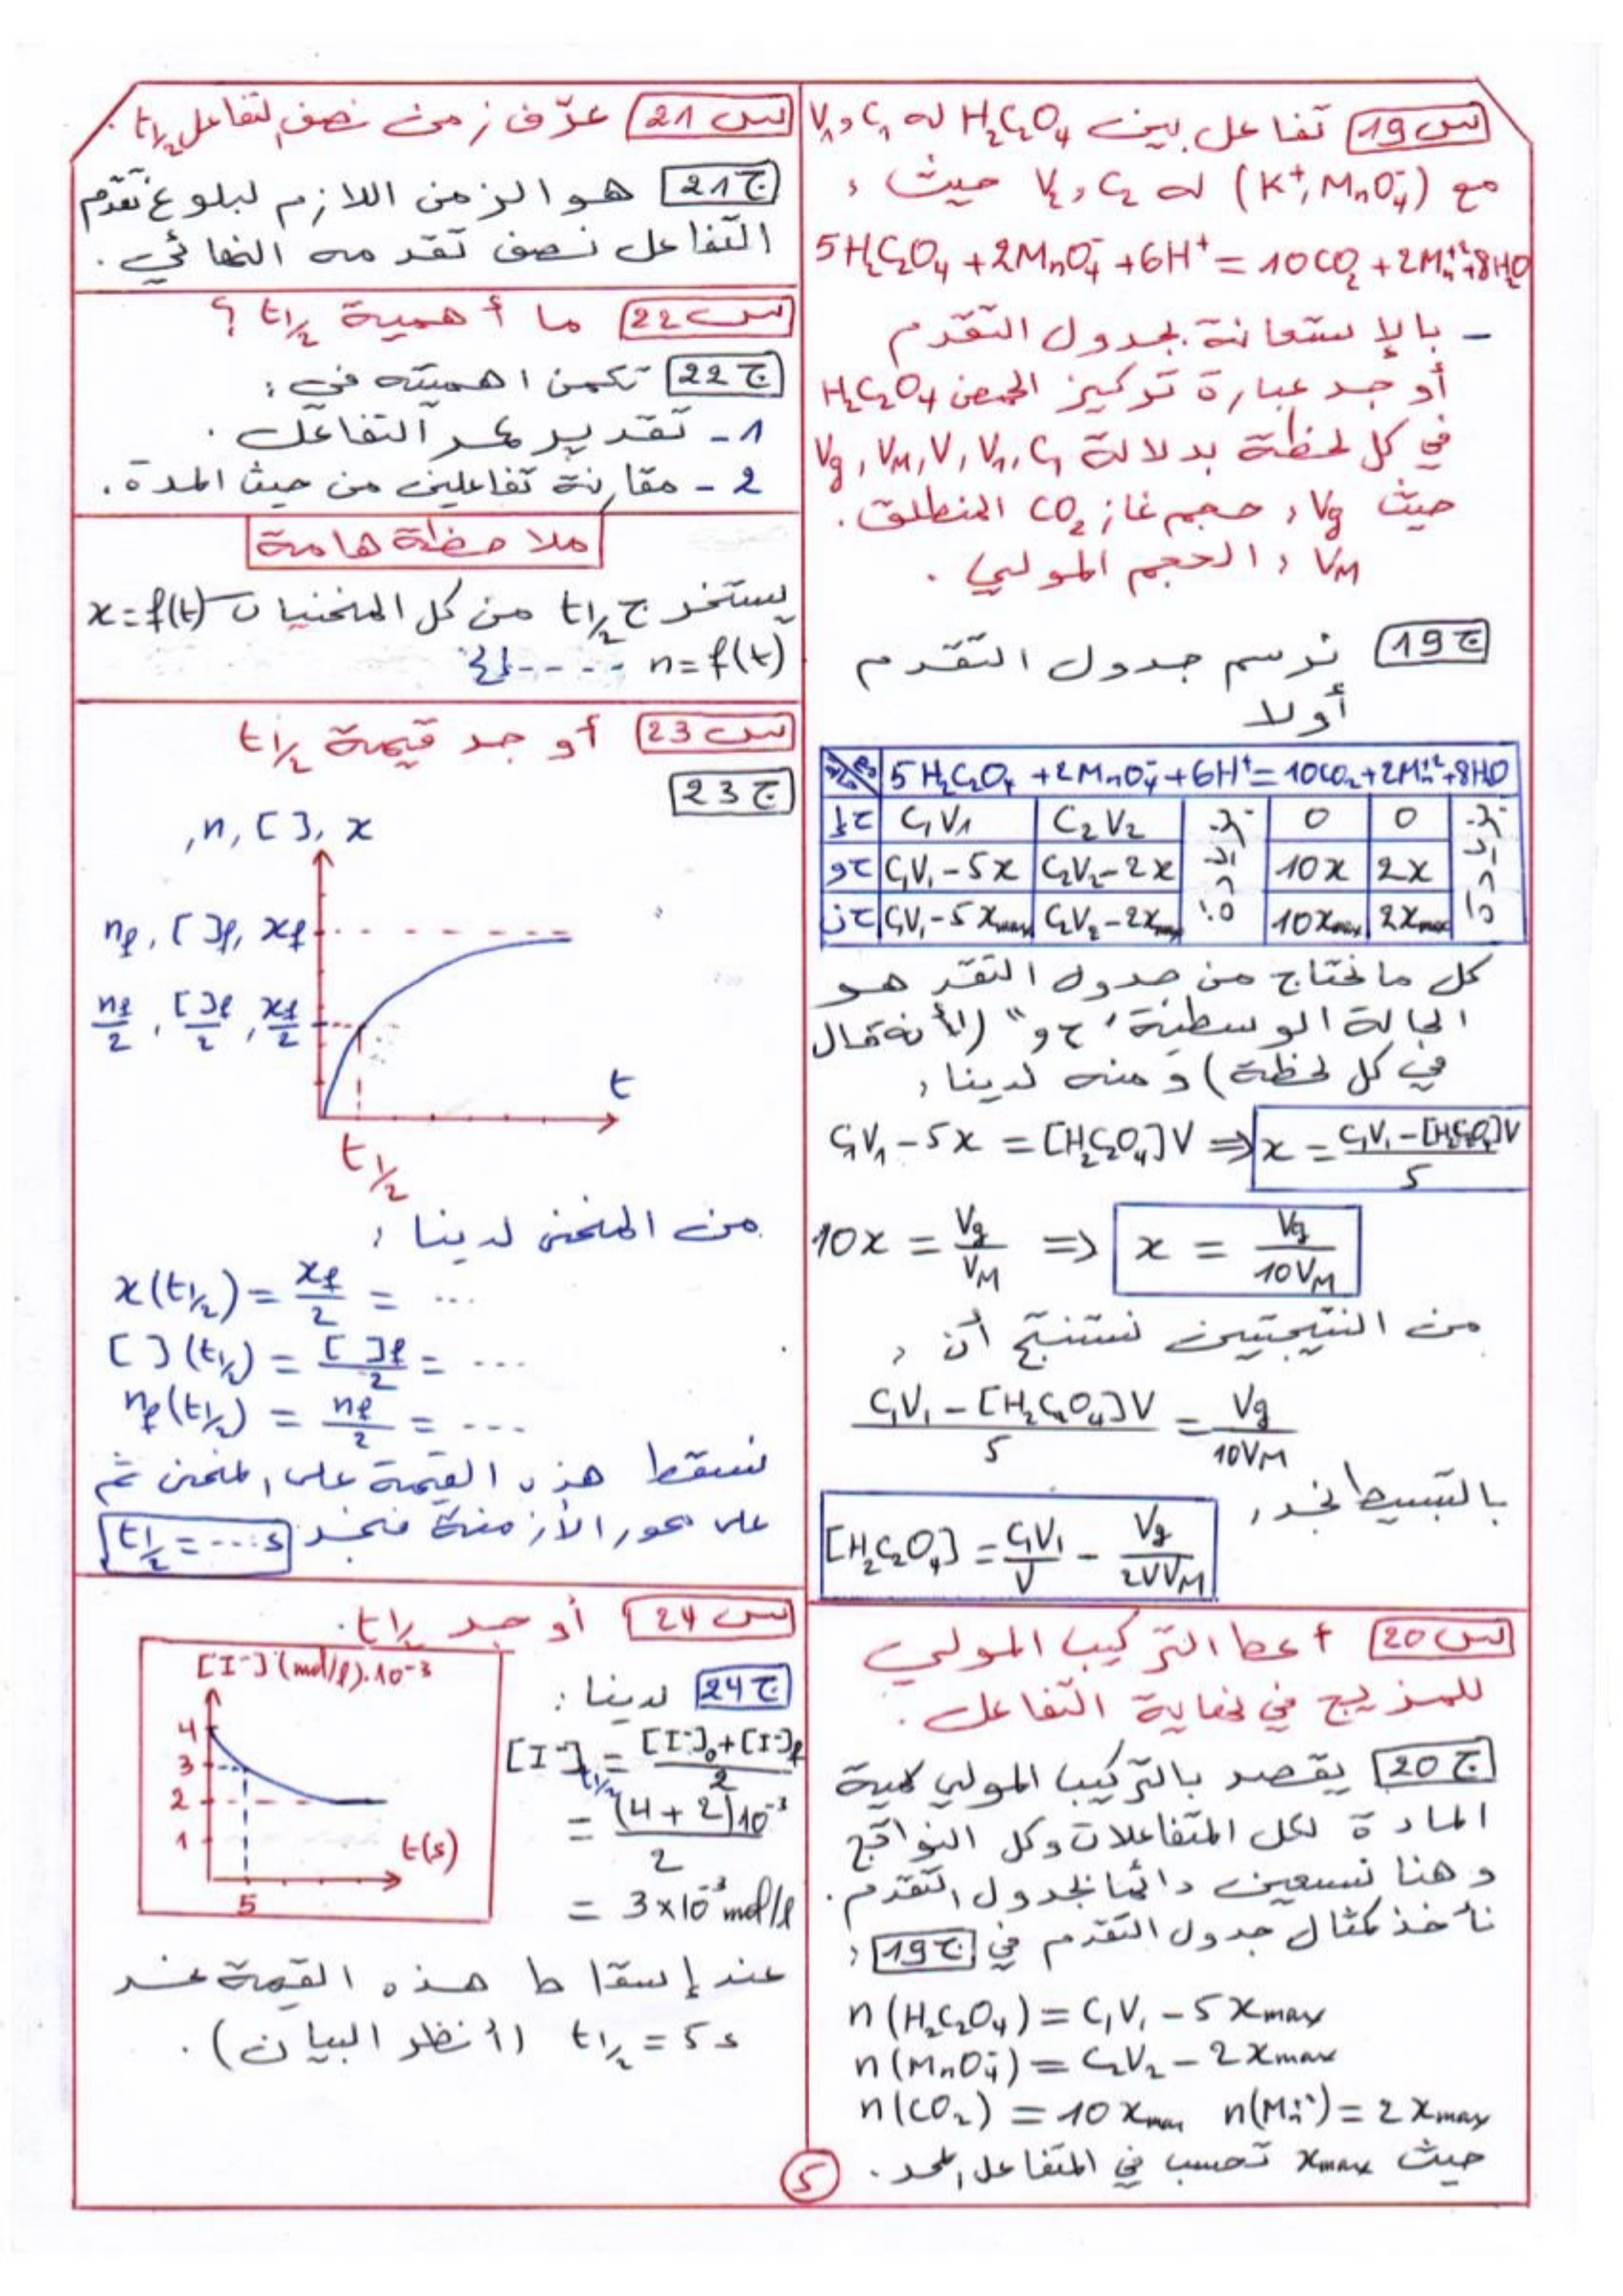 س19 تفاعل بين H₂C₂O₄ له C₁ و V₁
مع (K⁺, MnO₄⁻) له C₂ و V₂ حيث :
5H₂C₂O₄ + 2MnO₄⁻ + 6H⁺ = 10CO₂ + 2Mn⁺² + 8H₂O
- بالإستعانة بجدول التقدم
أوجد عبارة تركيز الحمض H₂C₂O₄
في كل لحظة بدلالة C₁, V₁, V, V_M, Vg
حيث Vg : حجم غاز CO₂ المنطلق.
V_M : الحجم المولي .
ج19 نرسم جدول التقدم
أولا
5H₂C₂O₄ + 2MnO₄⁻ + 6H⁺ = 10CO₂ + 2Mn⁺² + 8HO
ح إ C₁V₁ C₂V₂ بزيادة 0 0 بزيادة
ح و C₁V₁ - 5x C₂V₂ - 2x 10x 2x
ح ن C₁V₁ - 5xmax C₂V₂ - 2xmax 10xmax 2xmax
كل ما نحتاج من جدول التقدم هو
الحالة الوسطية "ح و" (لأنه قال
في كل لحظة) ومنه لدينا :
C₁V₁ - 5x = [H₂C₂O₄]V ⇒ x = (C₁V₁ - [H₂C₂O₄]V)/5
10x = Vg/V_M ⇒ x = Vg/10V_M
من النتيجتين نستنتج أن :
(C₁V₁ - [H₂C₂O₄]V)/5 = Vg/10V_M
بالتبسيط نجد :
[H₂C₂O₄] = C₁V₁/V - Vg/2VV_M
س20 أعط التركيب المولي
للمزيج في نهاية التفاعل .
ج20 يقصد بالتركيب المولي كمية
المادة لكل المتفاعلات وكل النواتج
وهنا نستعين دائما بجدول التقدم.
نأخذ كمثال جدول التقدم في ج19 :
n(H₂C₂O₄) = C₁V₁ - 5xmax
n(MnO₄⁻) = C₂V₂ - 2xmax
n(CO₂) = 10xmax n(Mn²⁺) = 2xmax
حيث xmax تحسب في المتفاعل المحد .
س21 عرّف زمن نصف التفاعل t1/2 .
ج21 هو الزمن اللازم لبلوغ تقدم
التفاعل نصف تقدمه النهائي .
س22 ما أهمية t1/2 ؟
ج22 تكمن اهميته في :
1- تقدير عمر التفاعل .
2- مقارنة تفاعلين من حيث المدة.
ملاحظة هامة
يستخرج t1/2 من كل المنحنيات x=f(t)
n=f(t) ---- إلخ
س23 أوجد قيمة t1/2
ج23
,n, [ ], x
nf, [ ]f, xf
nf/2, [ ]f/2, xf/2
t
t1/2
من المنحنى لدينا :
x(t1/2) = xf/2 = ...
[ ](t1/2) = [ ]f/2 = ...
nf(t1/2) = nf/2 = ...
نسقط هذه القيمة على المنحنى ثم
على محور الأزمنة فنجد t1/2 = ...s
س24 أوجد t1/2.
[I⁻] (mol/l).10⁻³
4
3
2
1
5
t(s)
ج24 لدينا :
[I⁻]t1/2 = ([I⁻]₀ + [I⁻]f)/2
= (4 + 2)10⁻³/2
= 3×10⁻³ mol/l
عند إسقاط هذه القيمة عند
t1/2 = 5s (أنظر البيان) .
5